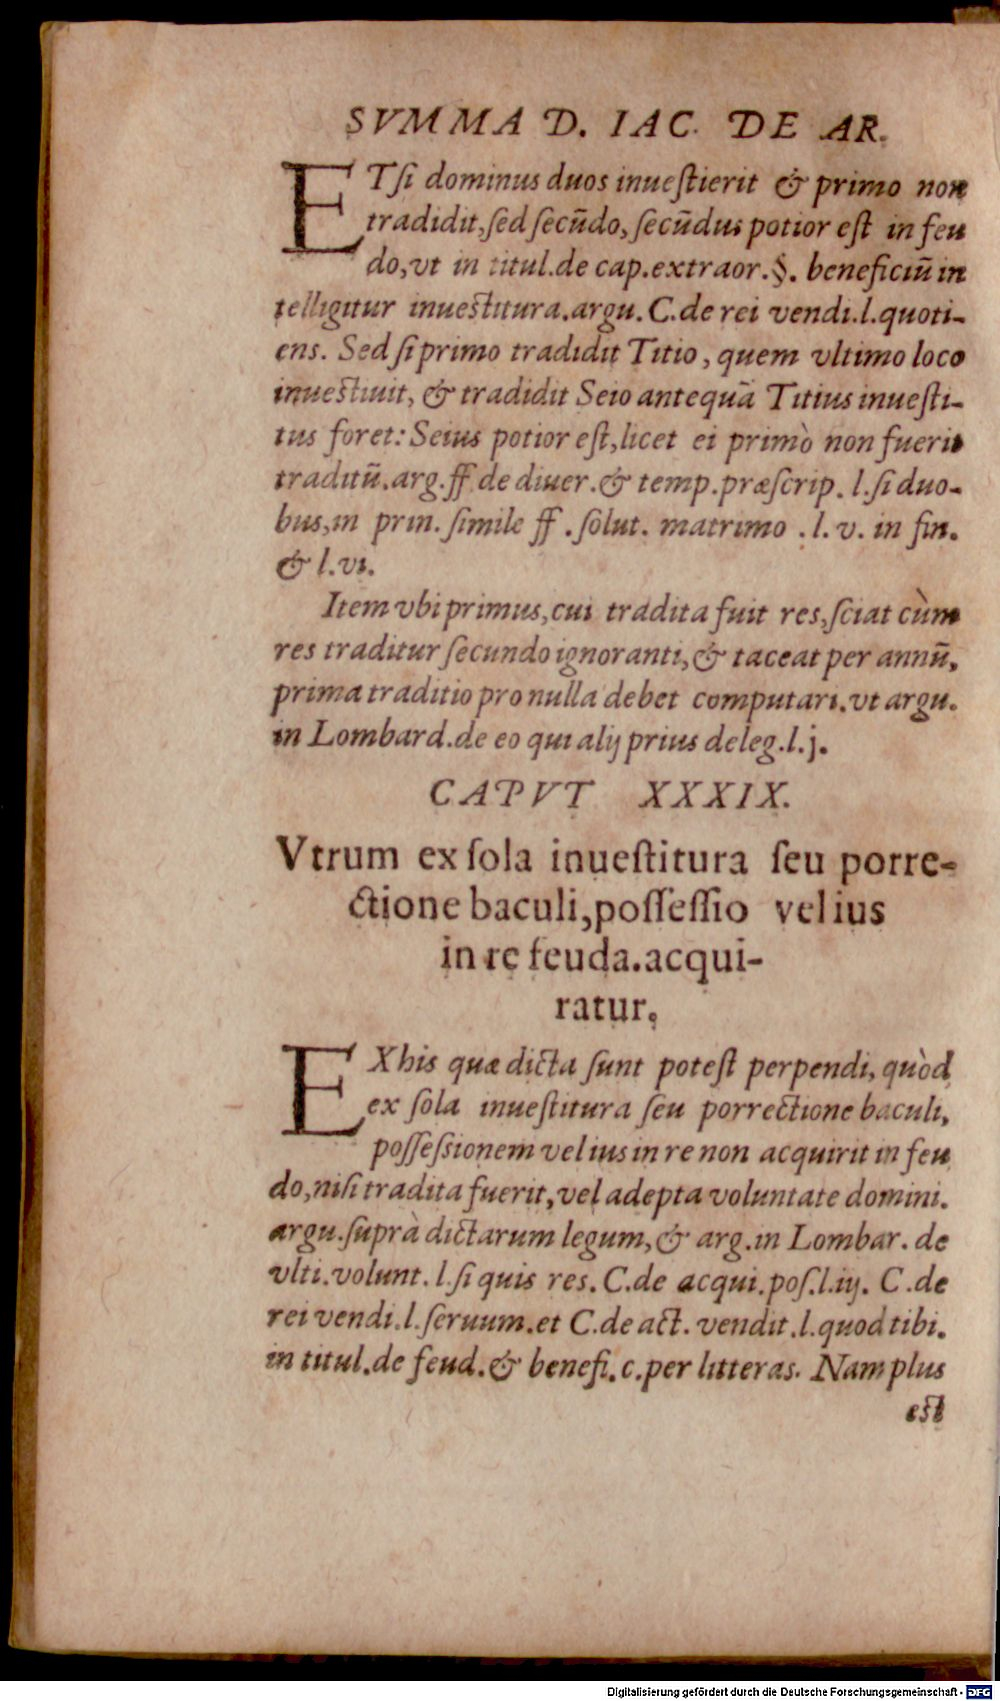 SVMMA D. IAC. DE AR.
ETſi dominus duos inueſtierit & primo non
tradidit, ſed ſecūdo, ſecūdus potior eſt in feu
do, vt in titul. de cap. extraor. §. beneficiū in
telligitur inueſtitura. argu. C. de rei vendi. l. quoti-
ens. Sed ſi primo tradidit Titio, quem vltimo loco
inueſtiuit, & tradidit Seio antequā Titius inueſti-
tus foret: Seius potior eſt, licet ei primò non fuerit
traditū. arg. ff. de diuer. & temp. præſcrip. l. ſi duo-
bus, in prin. ſimile ff. ſolut. matrimo. l. v. in fin.
& l. vi.
Item vbi primus, cui tradita fuit res, ſciat cùm
res traditur ſecundo ignoranti, & taceat per annū,
prima traditio pro nulla debet computari. vt argu.
in Lombard. de eo qui alij prius deleg. l. j.
CAPVT XXXIX.
Vtrum ex ſola inueſtitura ſeu porre-
ctione baculi, poſſeſſio vel ius
in re feuda. acqui-
ratur.
EX his quæ dicta ſunt poteſt perpendi, quòd
ex ſola inueſtitura ſeu porrectione baculi,
poſſeſsionem vel ius in re non acquirit in feu
do, niſi tradita fuerit, vel adepta voluntate domini.
argu. ſuprà dictarum legum, & arg. in Lombar. de
vlti. volunt. l. ſi quis res. C. de acqui. poſ. l. iij. C. de
rei vendi. l. ſeruum. et C. de act. vendit. l. quod tibi.
in titul. de feud. & benefi. c. per litteras. Nam plus
eſt
Digitalisierung gefördert durch die Deutsche Forschungsgemeinschaft - DFG